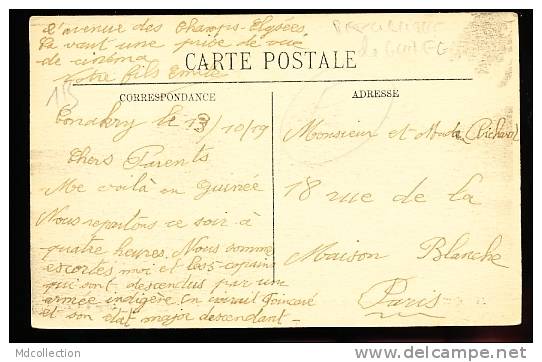 l'avenue des Champs-Elysées
Ça vaut une prise de vue
de cinéma
Votre fils Emile
CARTE POSTALE
CORRESPONDANCE
ADRESSE
Conakry le 13/10/19
Chers Parents
Me voilà en Guinée
Nous repartons ce soir à
quatre heures. Nous somme
escortés moi et les 5 copains
qui sont descendus par une
armée indigène. On dirait Poincaré
et son état major descendant -
Monsieur et Made Richard
18 rue de la
Maison Blanche
Paris
Mdcollection
www.delcampe.net